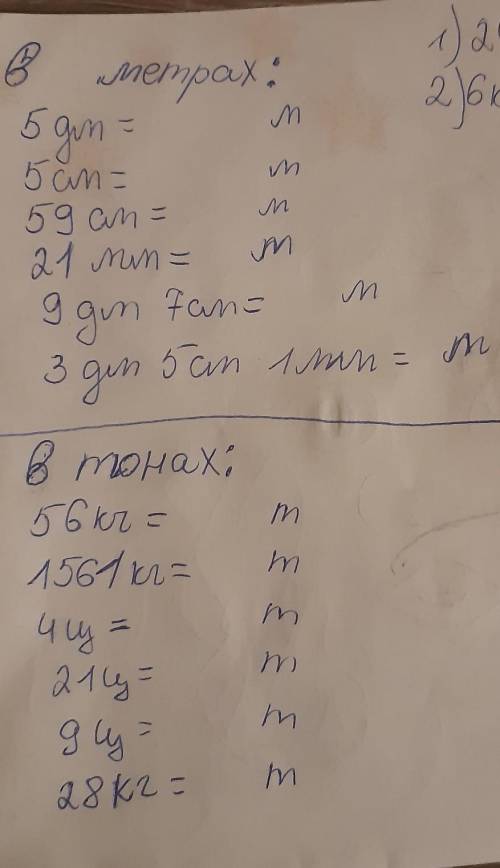 В метрах:
5 дм = м
5 см = м
59 см = м
21 мм = м
9 дм 7 см = м
3 дм 5 см 1 мм = м
В тонах:
56 кг = т
1561 кг = т
4 ц = т
21 ц = т
9 ц = т
28 кг = т
1) 2
2) 6